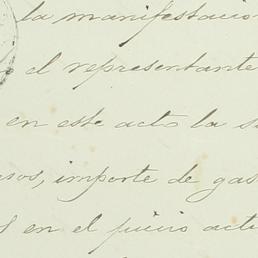 la manifestacio
el representante
en este acto la s
sos, importe de gas
en el juicio act